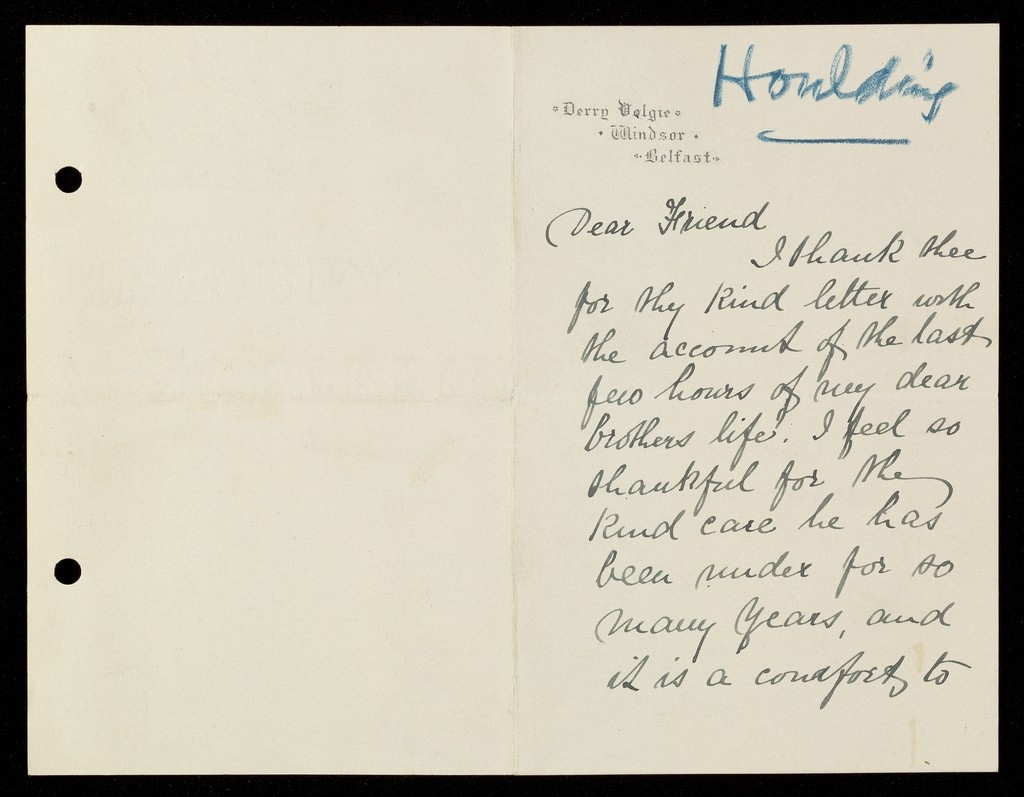 Houlding
Derry Volgie
Windsor
Belfast
Dear Friend
I thank thee
for thy kind letter with
the account of the last
few hours of my dear
brothers life. I feel so
thankful for the
kind care he has
been under for so
many years, and
it is a comfort, to